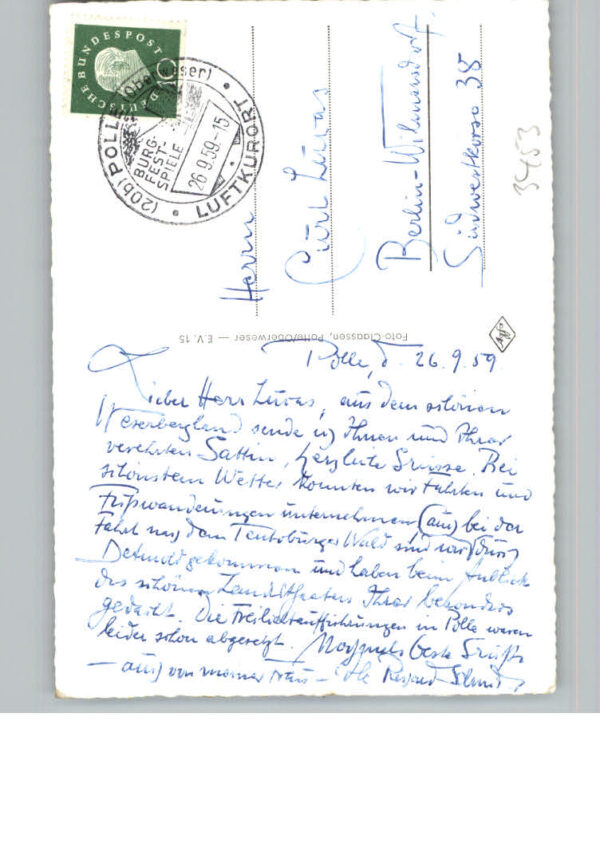 DEUTSCHE BUNDESPOST
10
(20b) POLLE (Oberweser)
BURG-
FEST-
SPIELE
26.9.59.-15
LUFTKURORT
Herrn
Curl Lucas
Berlin-Wilmersdorf.
Südwestkorso 38
3453
Foto-Claassen, Polle/Oberweser — E.V. 15
Polle, d. 26.9.59
Lieber Herr Lucas, aus dem schönen
Weserbergland sende ich Ihnen und Ihrer
verehrten Gattin, herzliche Grüsse. Bei
schönstem Wetter konnten wir Fahrten und
Fußwanderungen unternehmen (auch) bei der
Fahrt nach dem Teutoburger Wald sind wir durch
Detmold gekommen und haben beim Anblick
des schönen Landestheaters Ihrer besonders
gedacht. Die Freilichtaufführungen in Polle waren
leider schon abgesetzt. Nochmals beste Grüße
— auch von meiner Frau — Ihr Schmidt